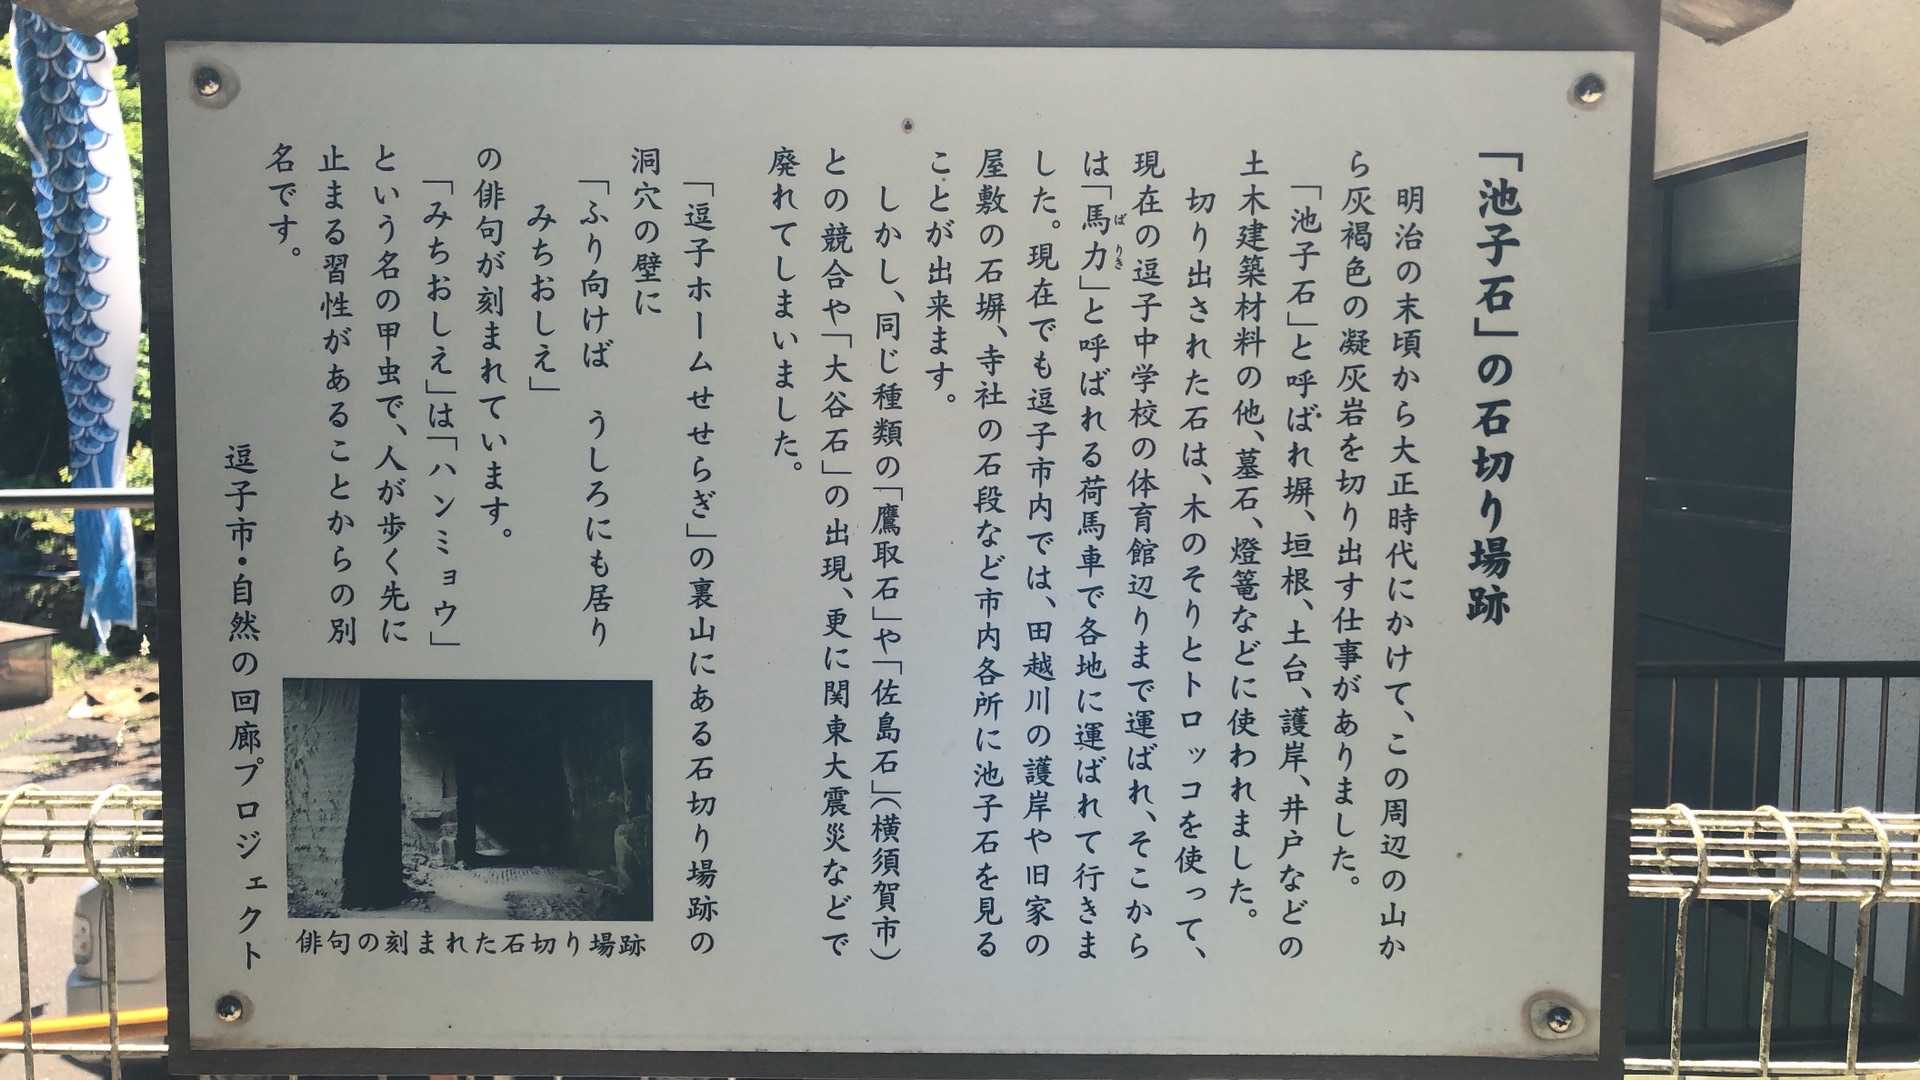 「池子石」の石切り場跡
明治の末頃から大正時代にかけて、この周辺の山か
ら灰褐色の凝灰岩を切り出す仕事がありました。
「池子石」と呼ばれ塀、垣根、土台、護岸、井戸などの
土木建築材料の他、墓石、燈篭などに使われました。
切り出された石は、木のそりとトロッコを使って、
現在の逗子中学校の体育館辺りまで運ばれ、そこから
は「馬力」と呼ばれる荷馬車で各地に運ばれて行きま
ばりき
した。現在でも逗子市内では、田越川の護岸や旧家の
屋敷の石塀、寺社の石段など市内各所に池子石を見る
ことが出来ます。
しかし、同じ種類の「鷹取石」や「佐島石」(横須賀市)
との競合や「大谷石」の出現、更に関東大震災などで
廃れてしまいました。
「逗子ホームせせらぎ」の裏山にある石切り場跡の
洞穴の壁に
「ふり向けば うしろにも居り
みちおしえ」
の俳句が刻まれています。
「みちおしえ」は「ハンミョウ」
という名の甲虫で、人が歩く先に
止まる習性があることからの別
名です。
俳句の刻まれた石切り場跡
逗子市・自然の回廊プロジェクト